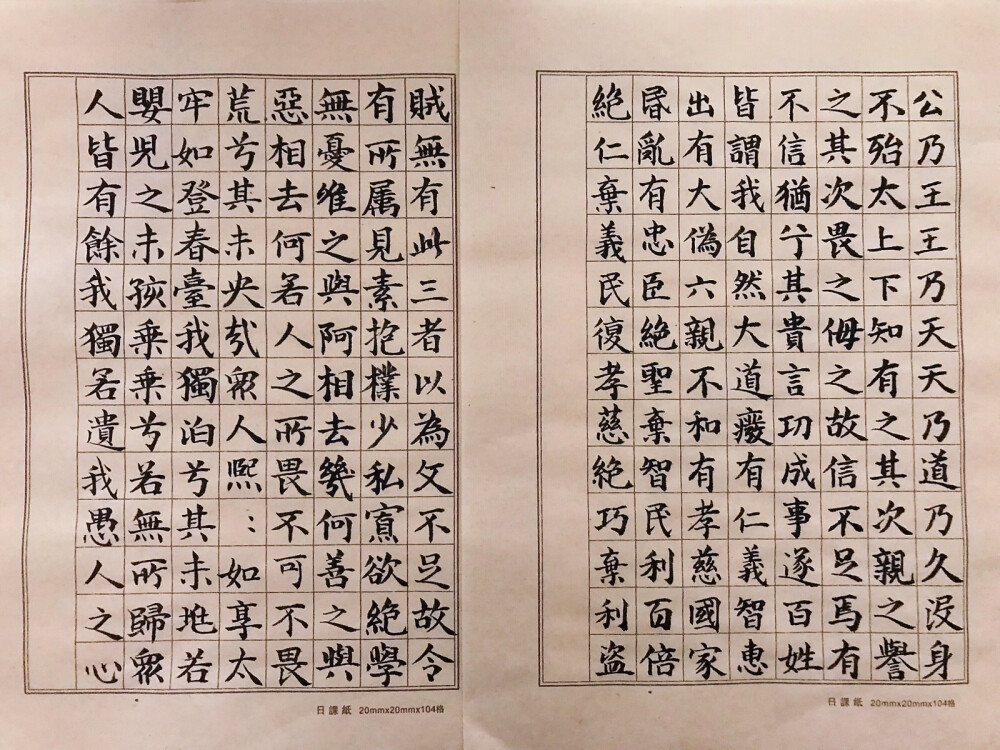 公乃王王乃天天乃道乃久沒身
不殆太上下知有之其次親之譽
之其次畏之侮之故信不足焉有
不信猶兮其貴言功成事遂百姓
皆謂我自然大道廢有仁義智惠
出有大偽六親不和有孝慈國家
昬亂有忠臣絕聖棄智民利百倍
絕仁棄義民復孝慈絕巧棄利盜
日課紙 20mmx20mmx104格
賊無有此三者以為文不足故令
有所属見素抱樸少私寡欲絕學
無憂唯之與阿相去幾何善之與
惡相去何若人之所畏不可不畏
荒兮其未央哉眾人熙:如享太
牢如登春臺我獨泊兮其未兆若
嬰児之未孩乘乘兮若無所歸眾
人皆有餘我獨若遺我愚人之心
日課紙 20mmx20mmx104格